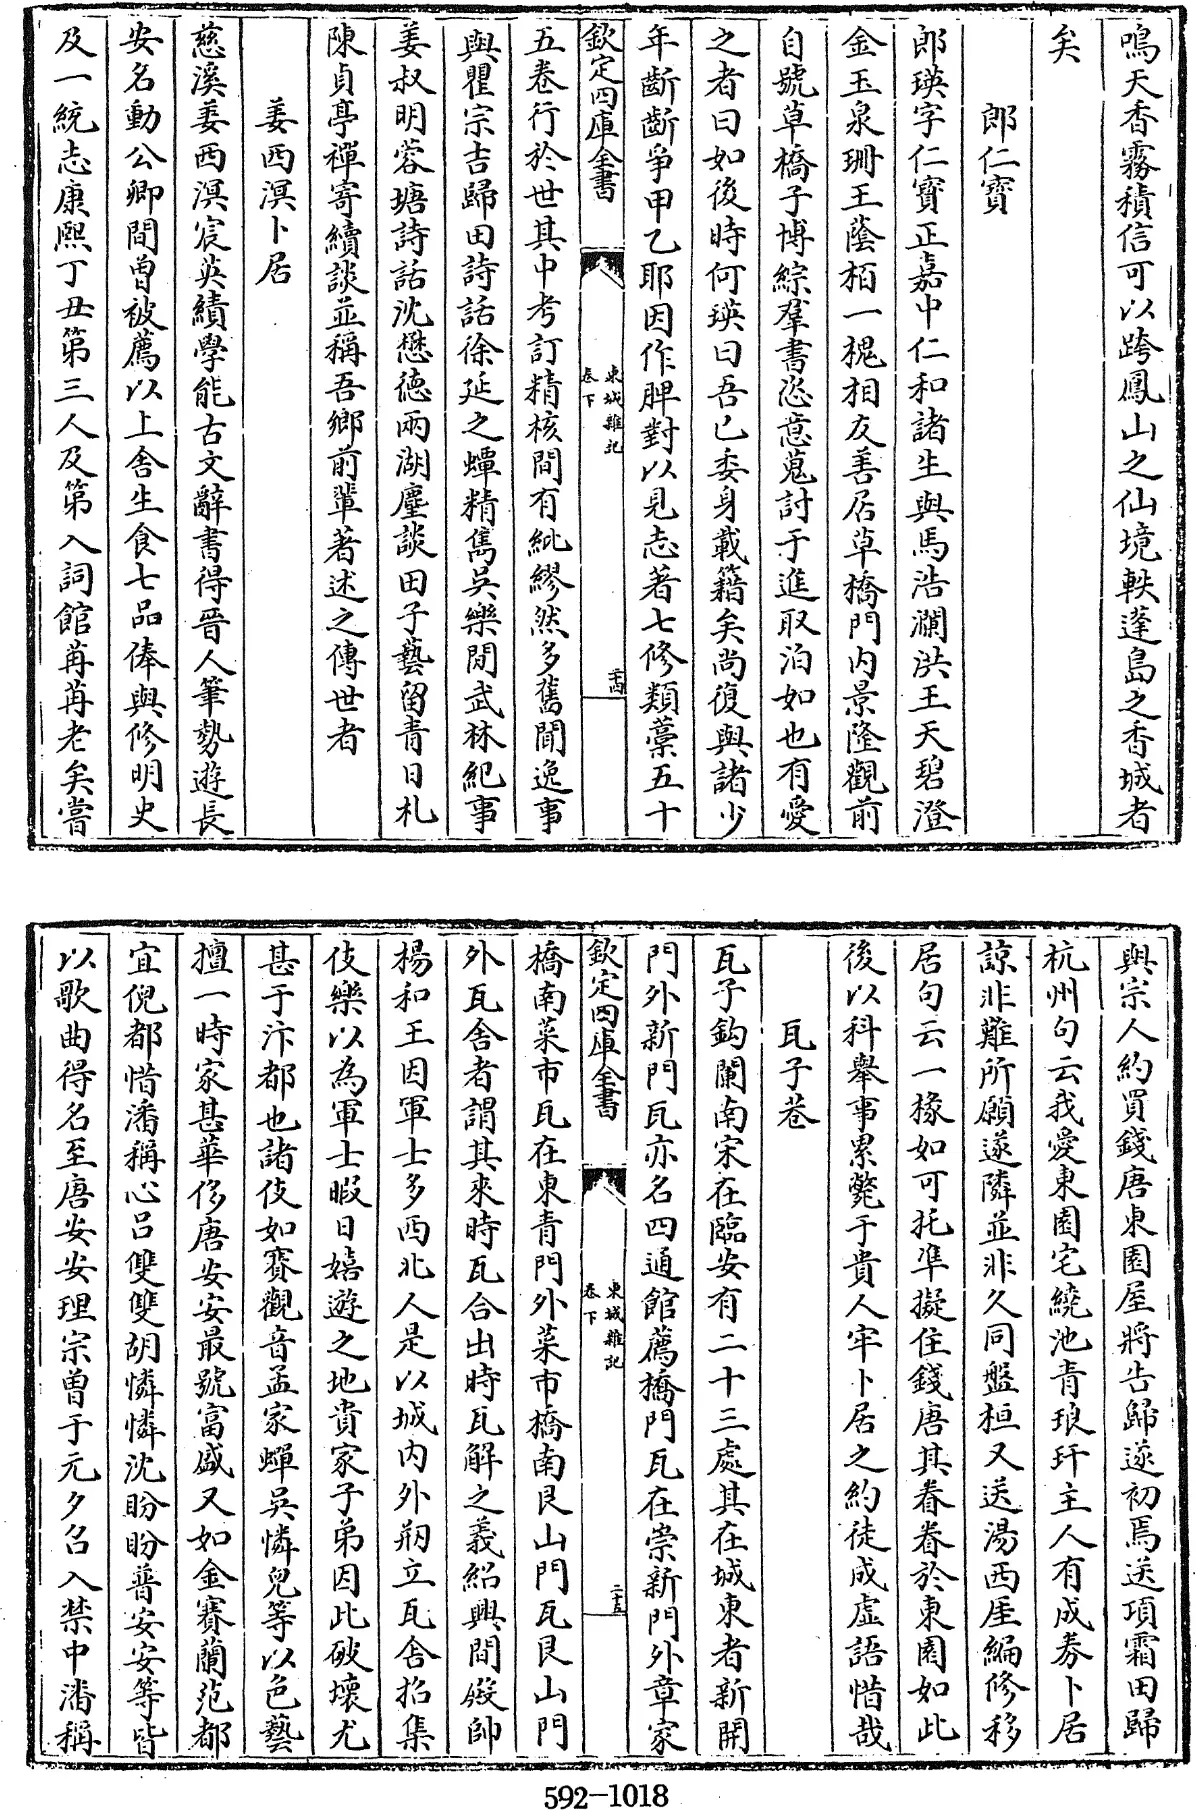 鳴天香霧積信可以跨鳳山之仙境軼蓬島之香城者
矣
郎仁寳
郎瑛字仁寳正嘉中仁和諸生與馬浩瀾洪王天碧澄
金玉泉珊王蔭栢一槐相友善居草橋門内景隆觀前
自號草橋子博綜羣書恣意蒐討于進取泊如也有愛
之者曰如後時何瑛曰吾已委身載籍矣尚復與諸少
年齗齗爭甲乙耶因作脾對以見志著七修類藁五十
欽定四庫全書
東城雜記
卷下
二十四
五卷行於世其中考訂精核間有紕繆然多舊聞逸事
與瞿宗吉歸田詩話徐延之蟫精雋吳樂閒武林紀事
姜叔明蓉塘詩話沈懋德兩湖塵談田子藝留青日札
陳貞亭禪寄續談並稱吾鄉前輩著述之傳世者
姜西溟卜居
慈溪姜西溟宸英績學能古文辭書得晉人筆勢遊長
安名動公卿間曽被薦以上舍生食七品俸與修明史
及一統志康熙丁丑第三人及第入詞館苒苒老矣嘗
與宗人約買錢唐東園屋將告歸遂初焉送項霜田歸
杭州句云我愛東園宅繞池青琅玕主人有成券卜居
諒非難所願遂隣並非久同盤桓又送湯西厓編修移
居句云一椽如可托凖擬住錢唐其眷眷於東園如此
後以科舉事累斃于貴人牢卜居之約徒成虚語惜哉
瓦子巷
瓦子鈎闌南宋在臨安有二十三處其在城東者新開
門外新門瓦亦名四通館薦橋門瓦在崇新門外章家
欽定四庫全書
東城雜記
卷下
二十五
橋南菜市瓦在東青門外菜市橋南艮山門瓦艮山門
外瓦舍者謂其來時瓦合出時瓦解之義紹興間殿帥
楊和王因軍士多西北人是以城内外剏立瓦舍招集
伎樂以為軍士暇日嬉遊之地貴家子弟因此破壞尤
甚于汴都也諸伎如賽觀音孟家蟬吳憐兒等以色藝
擅一時家甚華侈唐安安最號富盛又如金賽蘭范都
宜倪都惜潘稱心吕雙雙胡憐憐沈盼盼普安安等皆
以歌曲得名至唐安安理宗曽于元夕召入禁中潘稱
592-1018